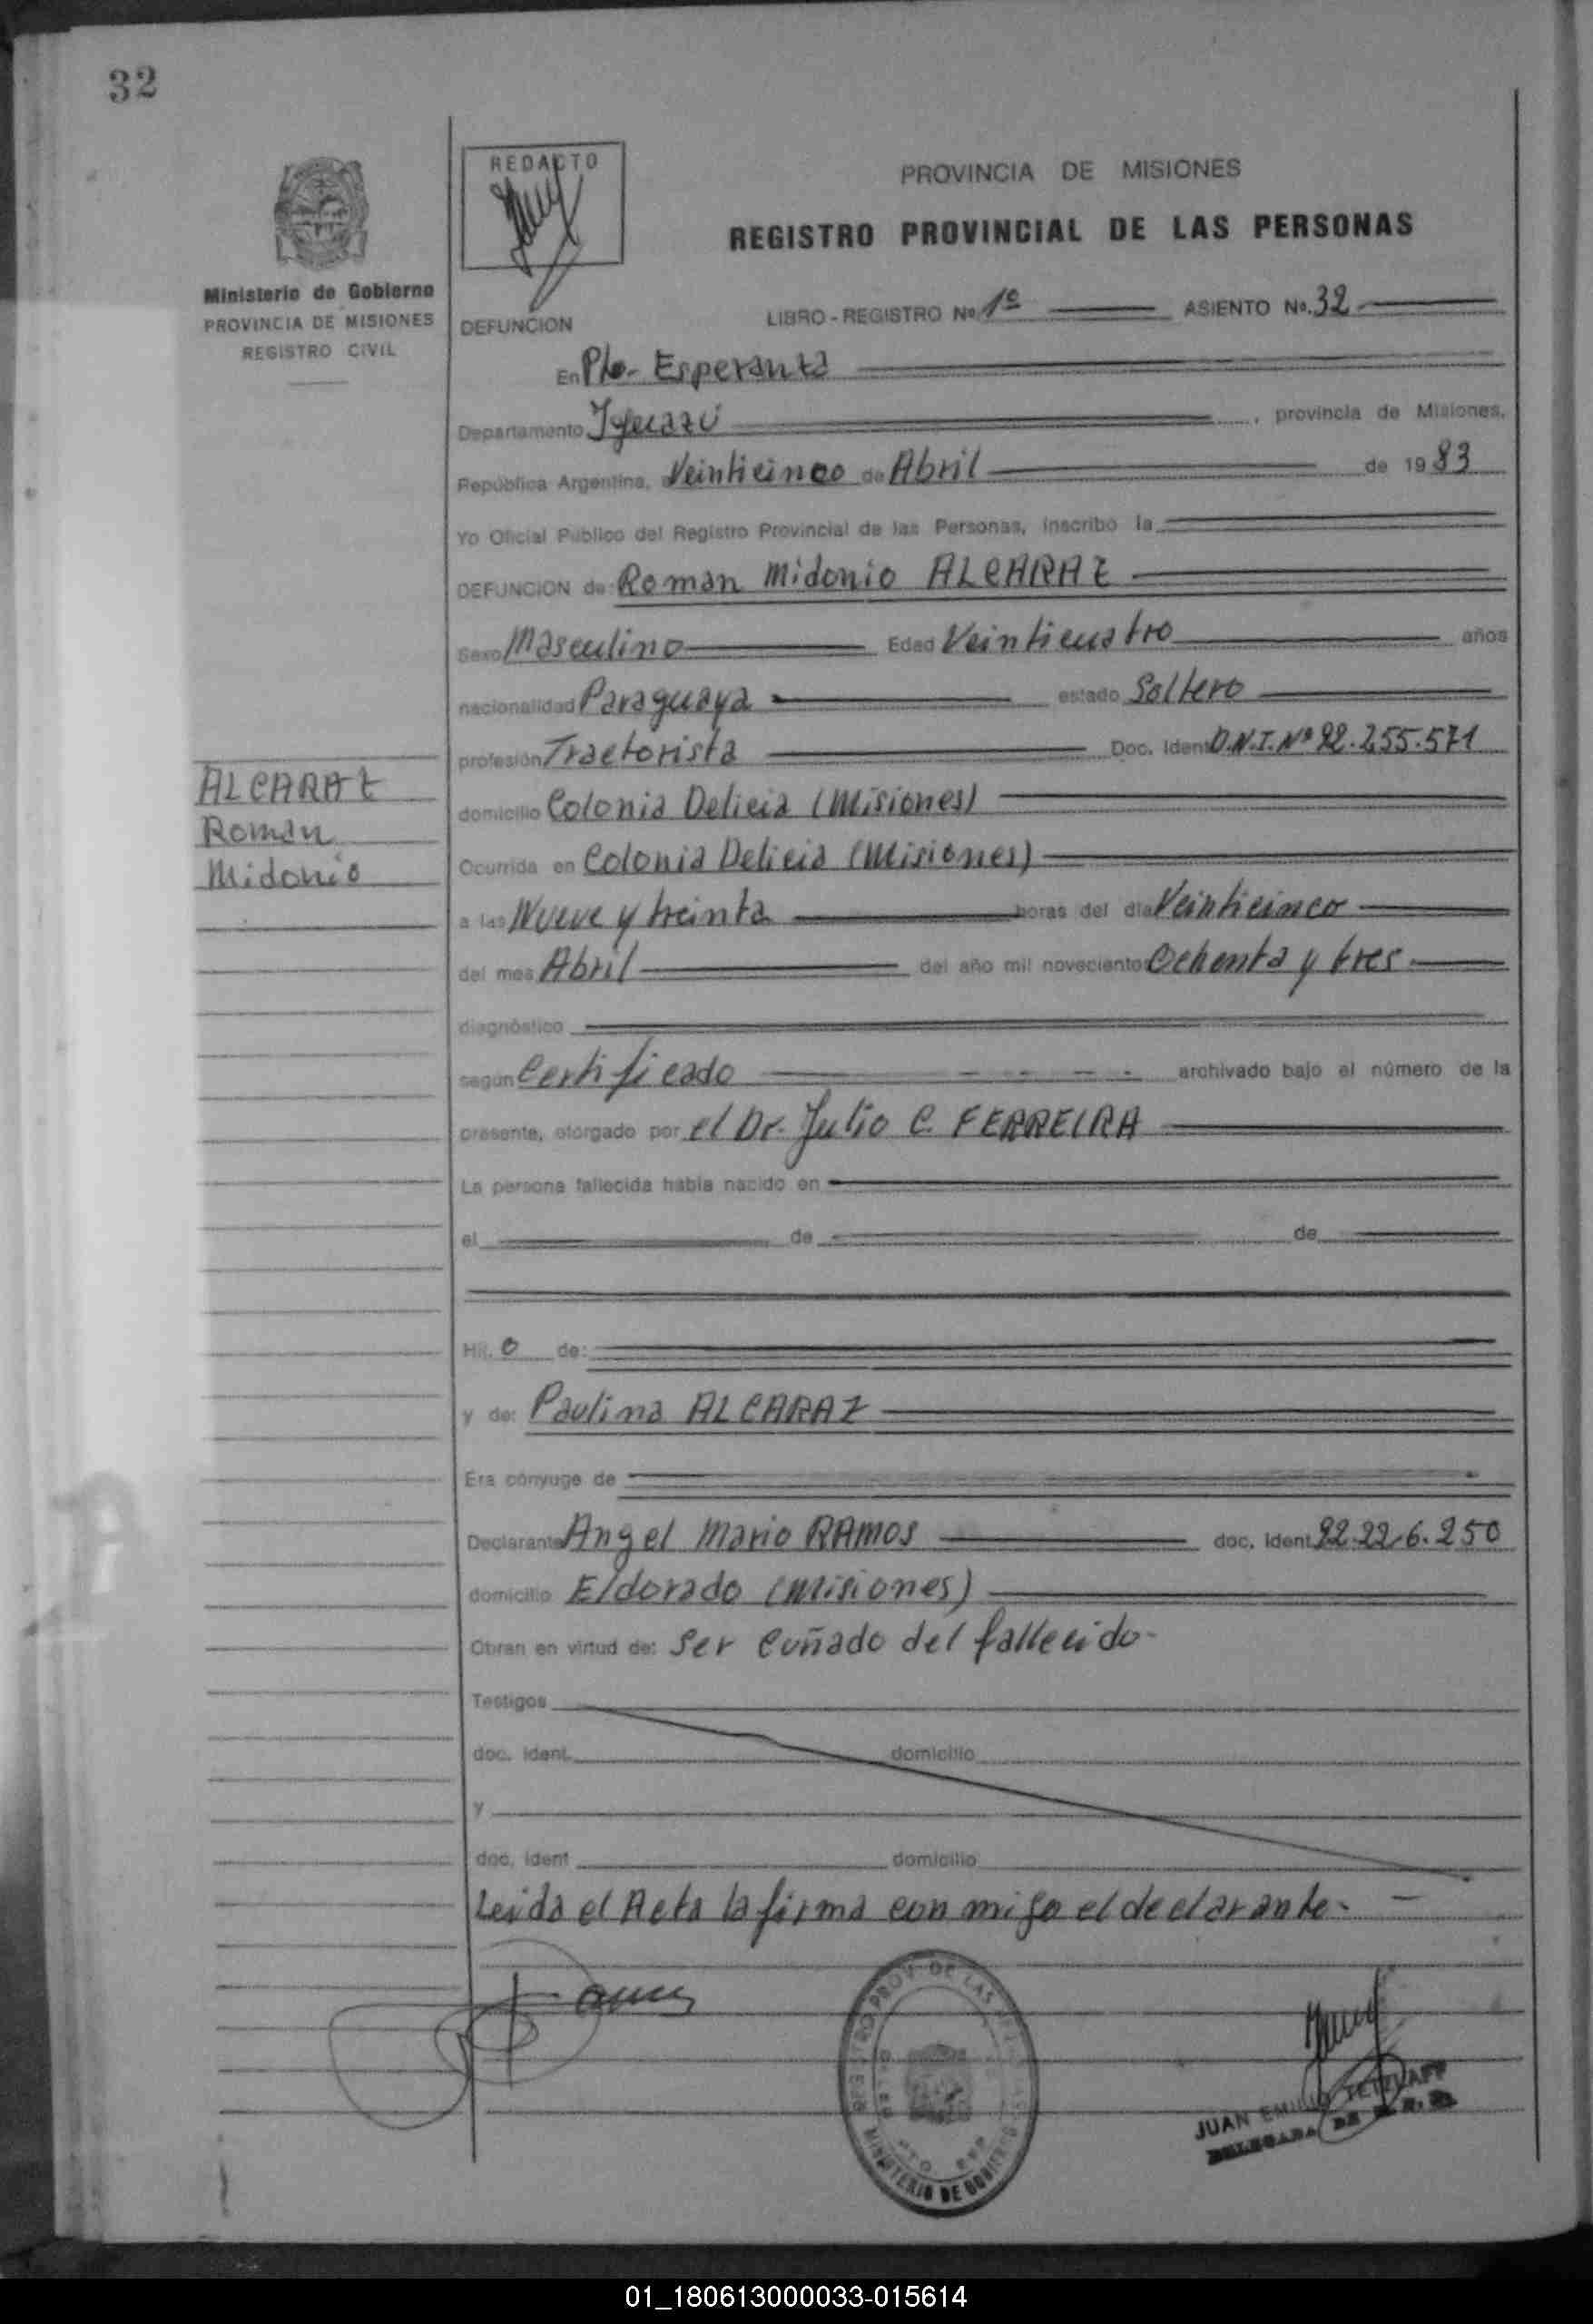 32
REDACTO
PROVINCIA DE MISIONES
REGISTRO PROVINCIAL DE LAS PERSONAS
Ministerio de Gobierno
PROVINCIA DE MISIONES
REGISTRO CIVIL
LIBRO - REGISTRO No 1º ASIENTO No. 32
DEFUNCION
En Pto. Esperanza
Departamento Iguazú, provincia de Misiones,
República Argentina, Veinticinco de Abril de 1983
Yo Oficial Público del Registro Provincial de las Personas, inscribo la
DEFUNCION de: Roman Midonio ALCARAZ
Sexo Masculino Edad Veinticuatro años
nacionalidad Paraguaya estado Soltero
profesión Tractorista Doc. Ident. D.N.I. Nº 92.255.571
domicilio Colonia Delicia (Misiones)
Ocurrida en Colonia Delicia (Misiones)
a las Nueve y treinta horas del día Veinticinco
del mes Abril del año mil novecientos Ochenta y tres
diagnóstico
según Certificado archivado bajo el número de la
presente, otorgado por el Dr. Julio C. FERREIRA
La persona fallecida había nacido en
el de de
Hij. o de:
y de: Paulina ALCARAZ
Era cónyuge de
Declarante Angel Mario RAMOS doc. Ident. 92.226.250
domicilio Eldorado (Misiones)
Obran en virtud de: Ser Cuñado del fallecido-
Testigos
doc. Ident. domicilio
y
doc. Ident domicilio
Leida el Acta la firma con migo el declarante.-
ALCARAZ
Roman
Midonio
MINISTERIO DE GOBIERNO
JUAN EMILIO TETZLAFF
01_180613000033-015614